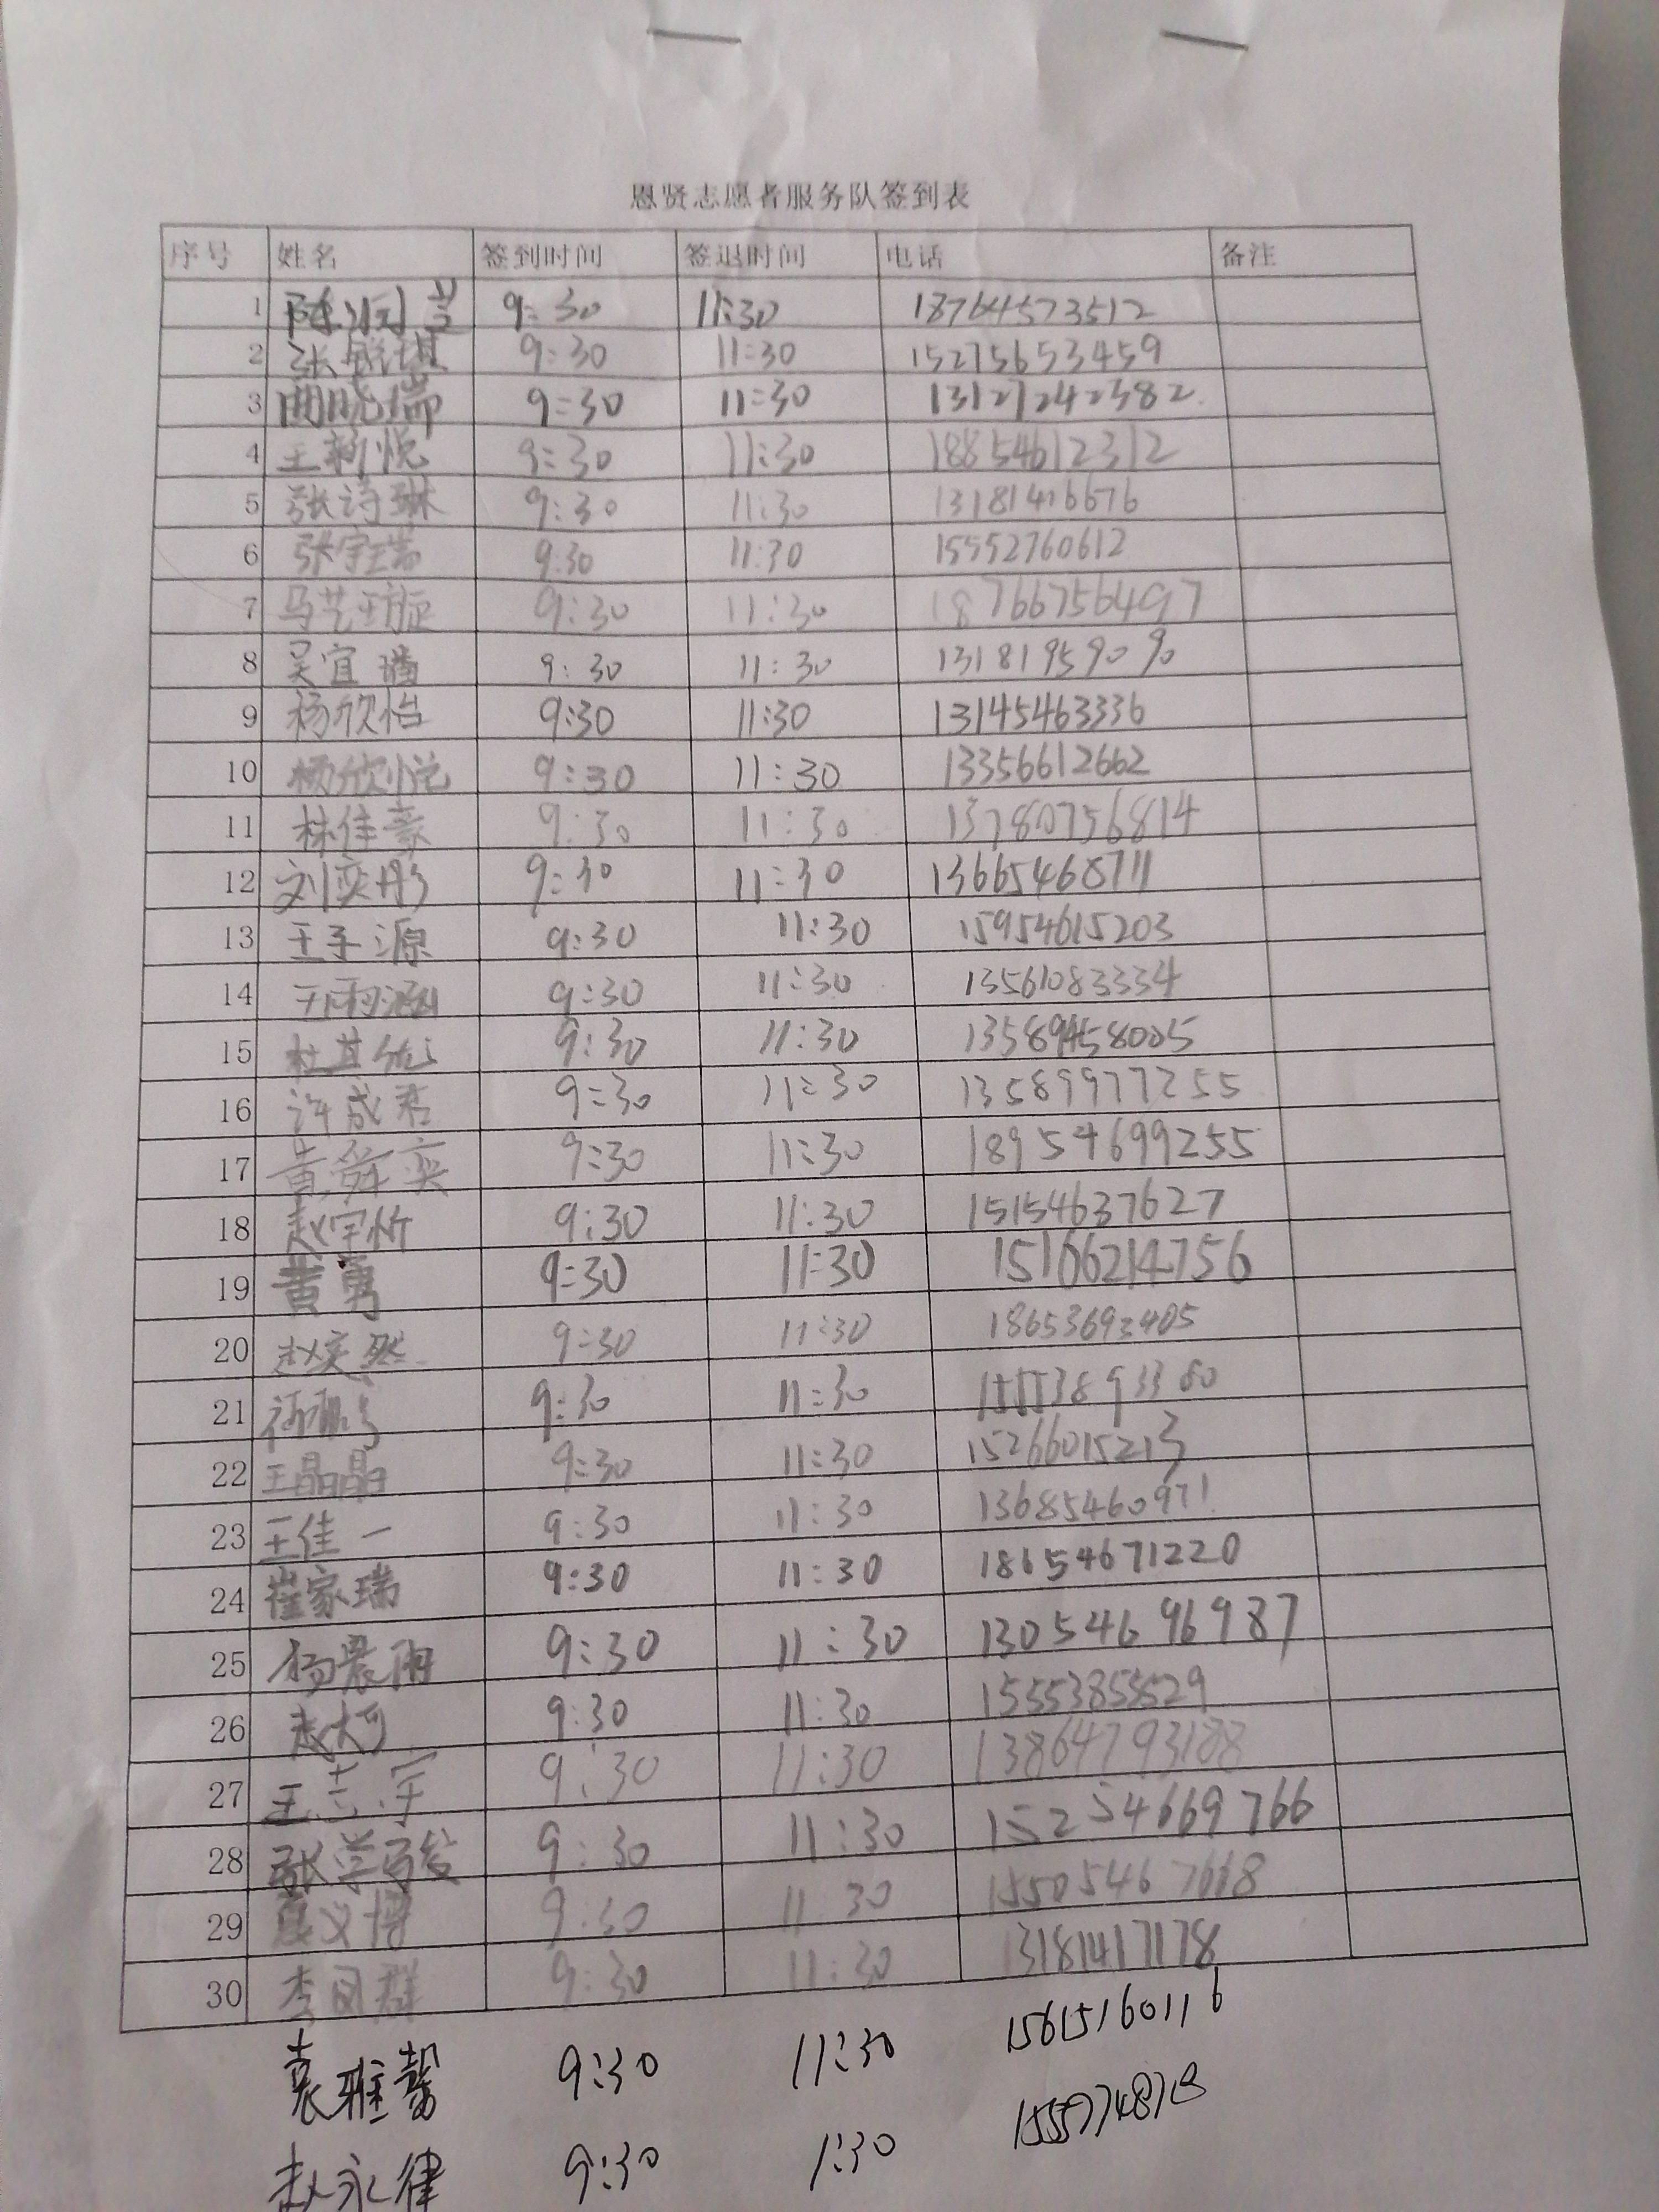 恩贤志愿者服务队签到表
序号 姓名 签到时间 签退时间 电话 备注
1 9:30 11:30 18764573512
2 张 9:30 11:30 15275653459
3 曲晓瑞 9:30 11:30 13127242382
4 王新悦 9:30 11:30 18854612312
5 张诗琳 9:30 11:30
6 张宇瑞 9:30 11:30 15552760612
7 马艺 9:30 11:30 18766756497
8 吴宜璠 9:30 11:30 13181959090
9 杨欣怡 9:30 11:30 13145463336
10 杨欣悦 9:30 11:30 13356612662
11 林佳豪 9:30 11:30 137807756814
12 刘奕彤 9:30 11:30 13665468711
13 王子源 9:30 11:30 15954615203
14 王雨涵 9:30 11:30 13561083334
15 杜 9:30 11:30 13589458005
16 许成君 9:30 11:30 13589977255
17 黄舜奕 9:30 11:30 18954699255
18 赵宇忻 9:30 11:30 15154637627
19 黄勇 9:30 11:30 15166214756
20 赵奕然 9:30 11:30 18653693405
21 9:30 11:30 15553893380
22 王晶晶 9:30 11:30 15266015213
23 王佳一 9:30 11:30 13685460971
24 崔家瑞 9:30 11:30 18654671220
25 杨晨雨 9:30 11:30 13054696987
26 赵 9:30 11:30 15553853529
27 王志宇 9:30 11:30 13864793188
28 张学 9:30 11:30 15254669766
29 夏文博 9:30 11:30
30 李凤群 9:30 11:30 13181417178
袁雅馨 9:30 11:30 15615160116
赵永律 9:30 1:30